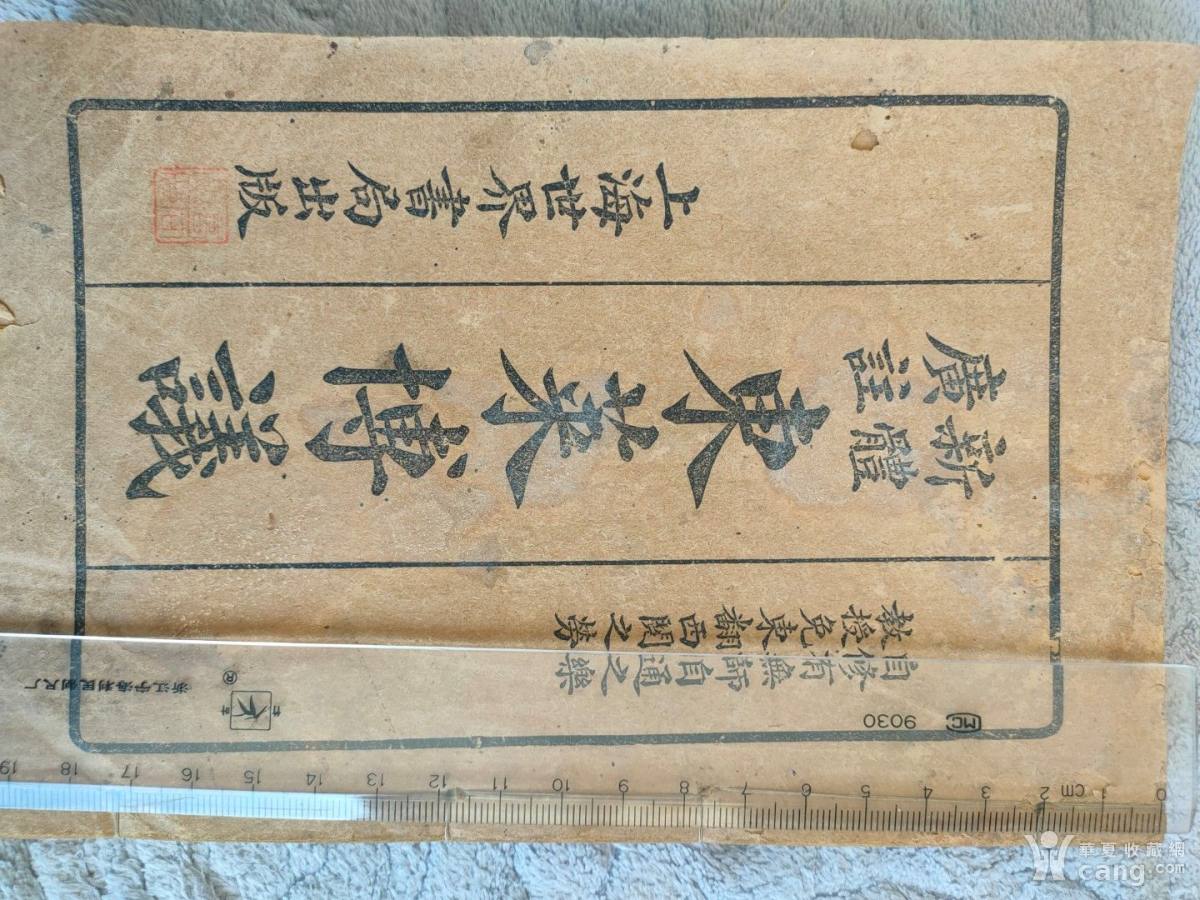 自修有無師自通之樂
教授免東翻西閱之勞
新體
廣註
東萊博議
上海世界書局出版
浙江宁海利民制尺厂
®
MC 9030
0 1 cm 2 3 4 5 6 7 8 9 10 11 12 13 14 15 16 17 18 19
華夏收藏網
cang.com